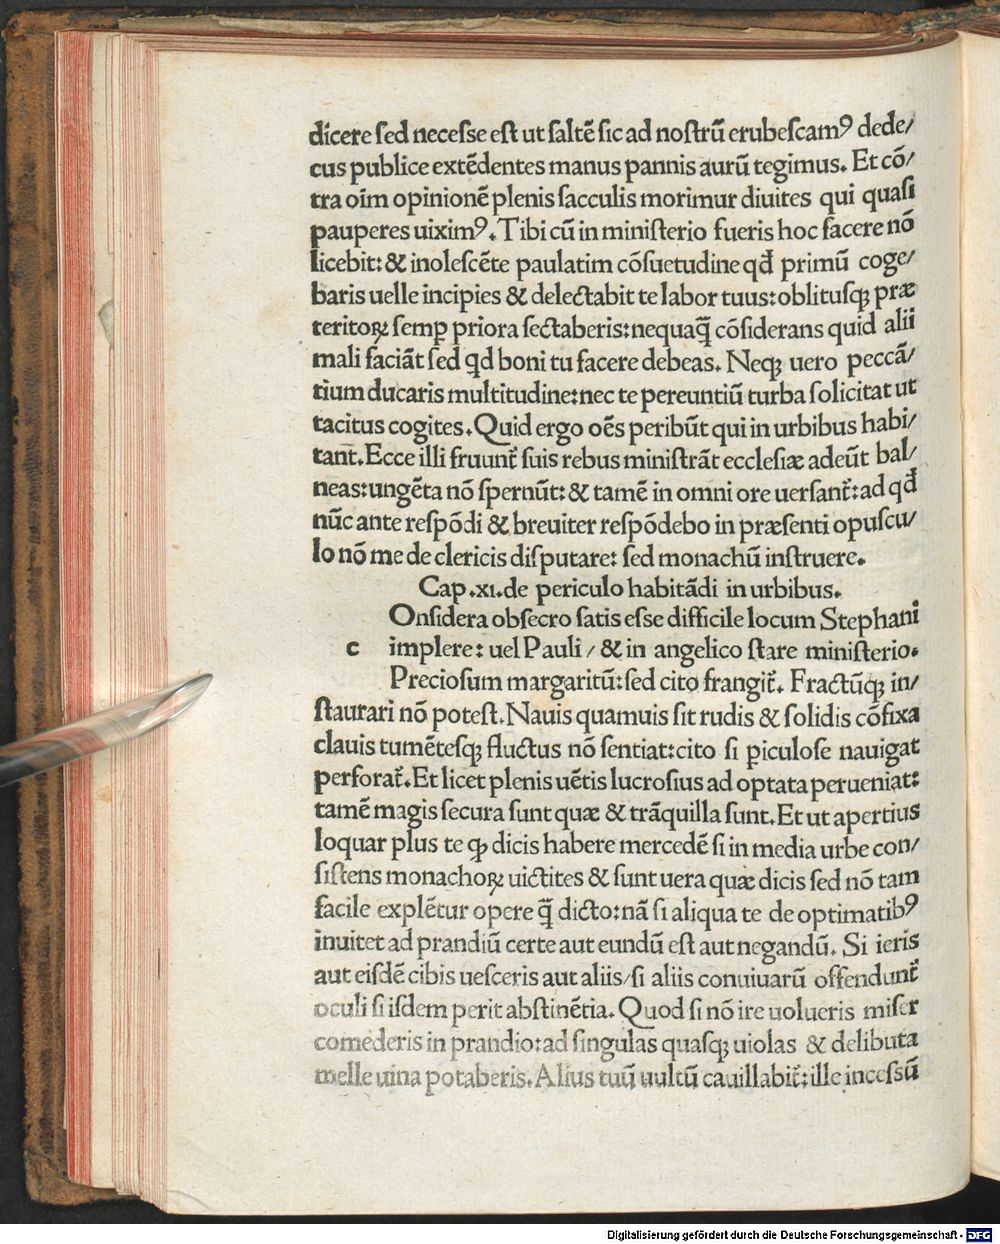 dicere ſed neceſſe eſt ut ſaltē ſic ad noſtrū erubeſcamꝰ dede/
cus publice extēdentes manus pannis aurū tegimus. Et cō/
tra oīm opinionē plenis ſacculis morimur diuites qui quaſi
pauperes uiximꝰ. Tibi cū in miniſterio fueris hoc facere nō
licebit: & inoleſcēte paulatim cōſuetudine qđ primū coge/
baris uelle incipies & delectabit te labor tuus: oblituſqꝫ præ
teritoꝝ ſemꝑ priora ſectaberis: nequaꝗ̄ cōſiderans quid alii
mali faciāt ſed qd boni tu facere debeas. Neqꝫ uero peccā/
tium ducaris multitudine: nec te pereuntiū turba ſolicitat ut
tacitus cogites. Quid ergo oēs peribūt qui in urbibus habi/
tant. Ecce illi fruunt̄ ſuis rebus miniſtrāt eccleſiæ adeūt bal/
neas: ungēta nō ſpernūt: & tamē in omni ore uerſant̄: ad qđ
nūc ante reſpōdi & breuiter reſpōdebo in præſenti opuſcu/
lo nō me de clericis diſputare: ſed monachū inſtruere.
Cap .xi. de periculo habitādi in urbibus.
Onſidera obſecro ſatis eſſe difficile locum Stephani
c implere: uel Pauli / & in angelico ſtare miniſterio.
Precioſum margaritū: ſed cito frangit̄. Fractūqꝫ in/
ſtaurari nō poteſt. Nauis quamuis ſit rudis & ſolidis cōfixa
clauis tumēteſqꝫ fluctus nō ſentiat: cito ſi ꝑiculoſe nauigat
perforat̄. Et licet plenis uētis lucroſius ad optata perueniat:
tamē magis ſecura ſunt quæ & trāquilla ſunt. Et ut apertius
loquar plus te ꝙ dicis habere mercedē ſi in media urbe con/
ſiſtens monachoꝝ uictites & ſunt uera quæ dicis ſed nō tam
facile explētur opere ꝗ̄ dicto: nā ſi aliqua te de optimatibꝰ
inuitet ad prandiū certe aut eundū eſt aut negandū. Si ieris
aut eiſdē cibis ueſceris aut aliis / ſi aliis conuiuarū offendunt̄
oculi ſi iſdem perit abſtinētia. Quod ſi nō ire uolueris miſer
comederis in prandio: ad ſingulas quaſqꝫ uiolas & delibuta
melle uina potaberis. Alius tuū uultū cauillabit̄: ille inceſſū
Digitalisierung gefördert durch die Deutsche Forschungsgemeinschaft - DFG